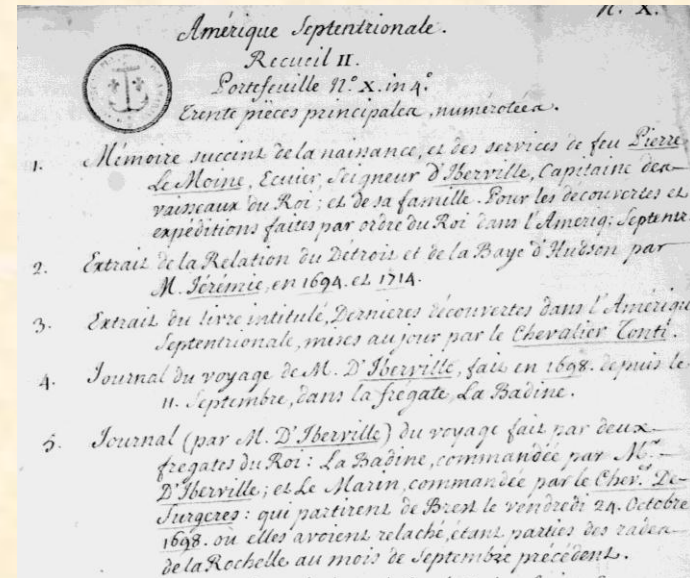 N. X.
Amérique Septentrionale.
Recueil II.
Portefeuille N.º X. in 4.º
Trente pièces principales, numérotées.
1. Mémoire succint de la naissance, et des services de feu Pierre
Le Moine, Ecuier, Seigneur d'Iberville, Capitaine des
vaisseaux du Roi; et de sa famille. Pour les découvertes et
expéditions faites par ordre du Roi dans l'Ameriq: Septentr.
2. Extrait de la Relation du Détroit et de la Baye d'Hudson par
M. Jéremie, en 1694. et 1714.
3. Extrait du livre intitulé, Dernieres découvertes dans l'Amérique
Septentrionale, mises au jour par le Chevalier Tonti.
4. Journal du voyage de M. D'Iberville, fait en 1698. depuis le
11. Septembre, dans la frégate, La Badine.
5. Journal (par M. D'Iberville) du voyage fait par deux
fregates du Roi: La Badine, commandée par M.r
D'Iberville; et Le Marin, commandée par le Chev.er De
Surgeres: qui partirent de Brest le vendredi 24. Octobre
1698. où elles avoient relaché, étant parties des rades
de la Rochelle au mois de Septembre précédent.